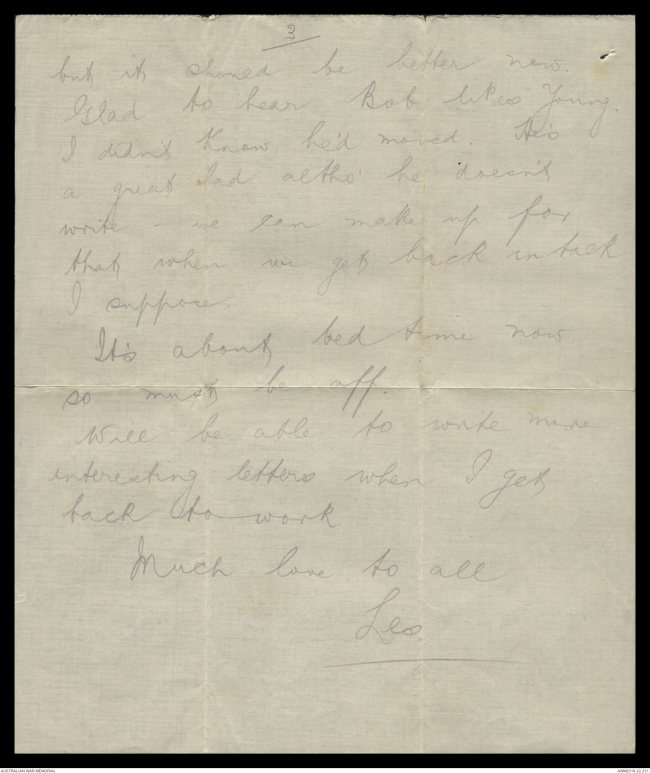 3
but it should be better now.
Glad to hear Bob likes Young.
I didn't know he'd moved. He's
a great lad altho' he doesn't
write - we can make up for
that when we get back in
I suppose.
It's about bed time now
so must be off.
Will be able to write more
interesting letters when I get
back to work.
Much love to all
Les.
AUSTRALIAN WAR MEMORIAL